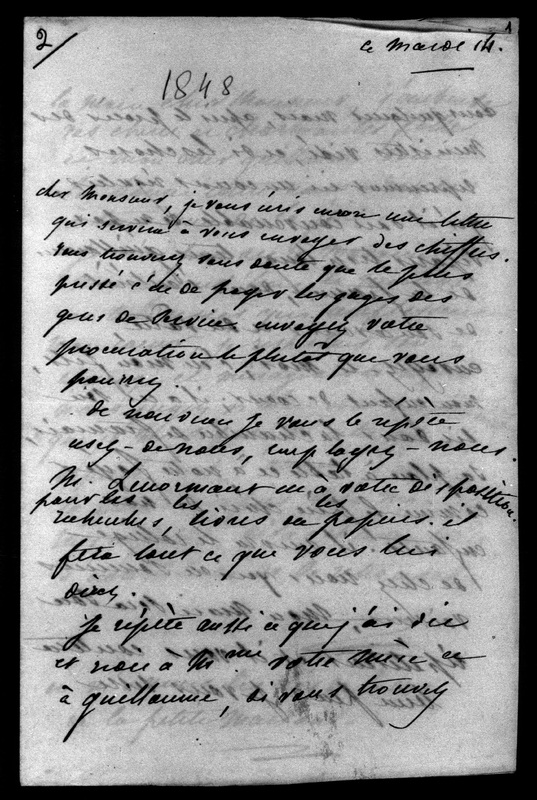 2/
1
ce mardi 14.
1848
cher Monsieur, je vous écris encore une lettre
qui servira à vous envoyer des chiffres.
vous trouverez sans doute que le plus
pressé c'est de payer les gages des
gens de service envoyez votre
procuration le plutôt que vous
pourrez.
de nouveau je vous le répète
usez-de nous, employez-nous.
M. Lenormant est à votre disposition
pour les les les
recherches, livres ou papiers. il
fera tout ce que vous lui
direz.
je répète aussi ce que j'ai dit
et non à Mme votre mère ce
à guillaume, si vous trouvez